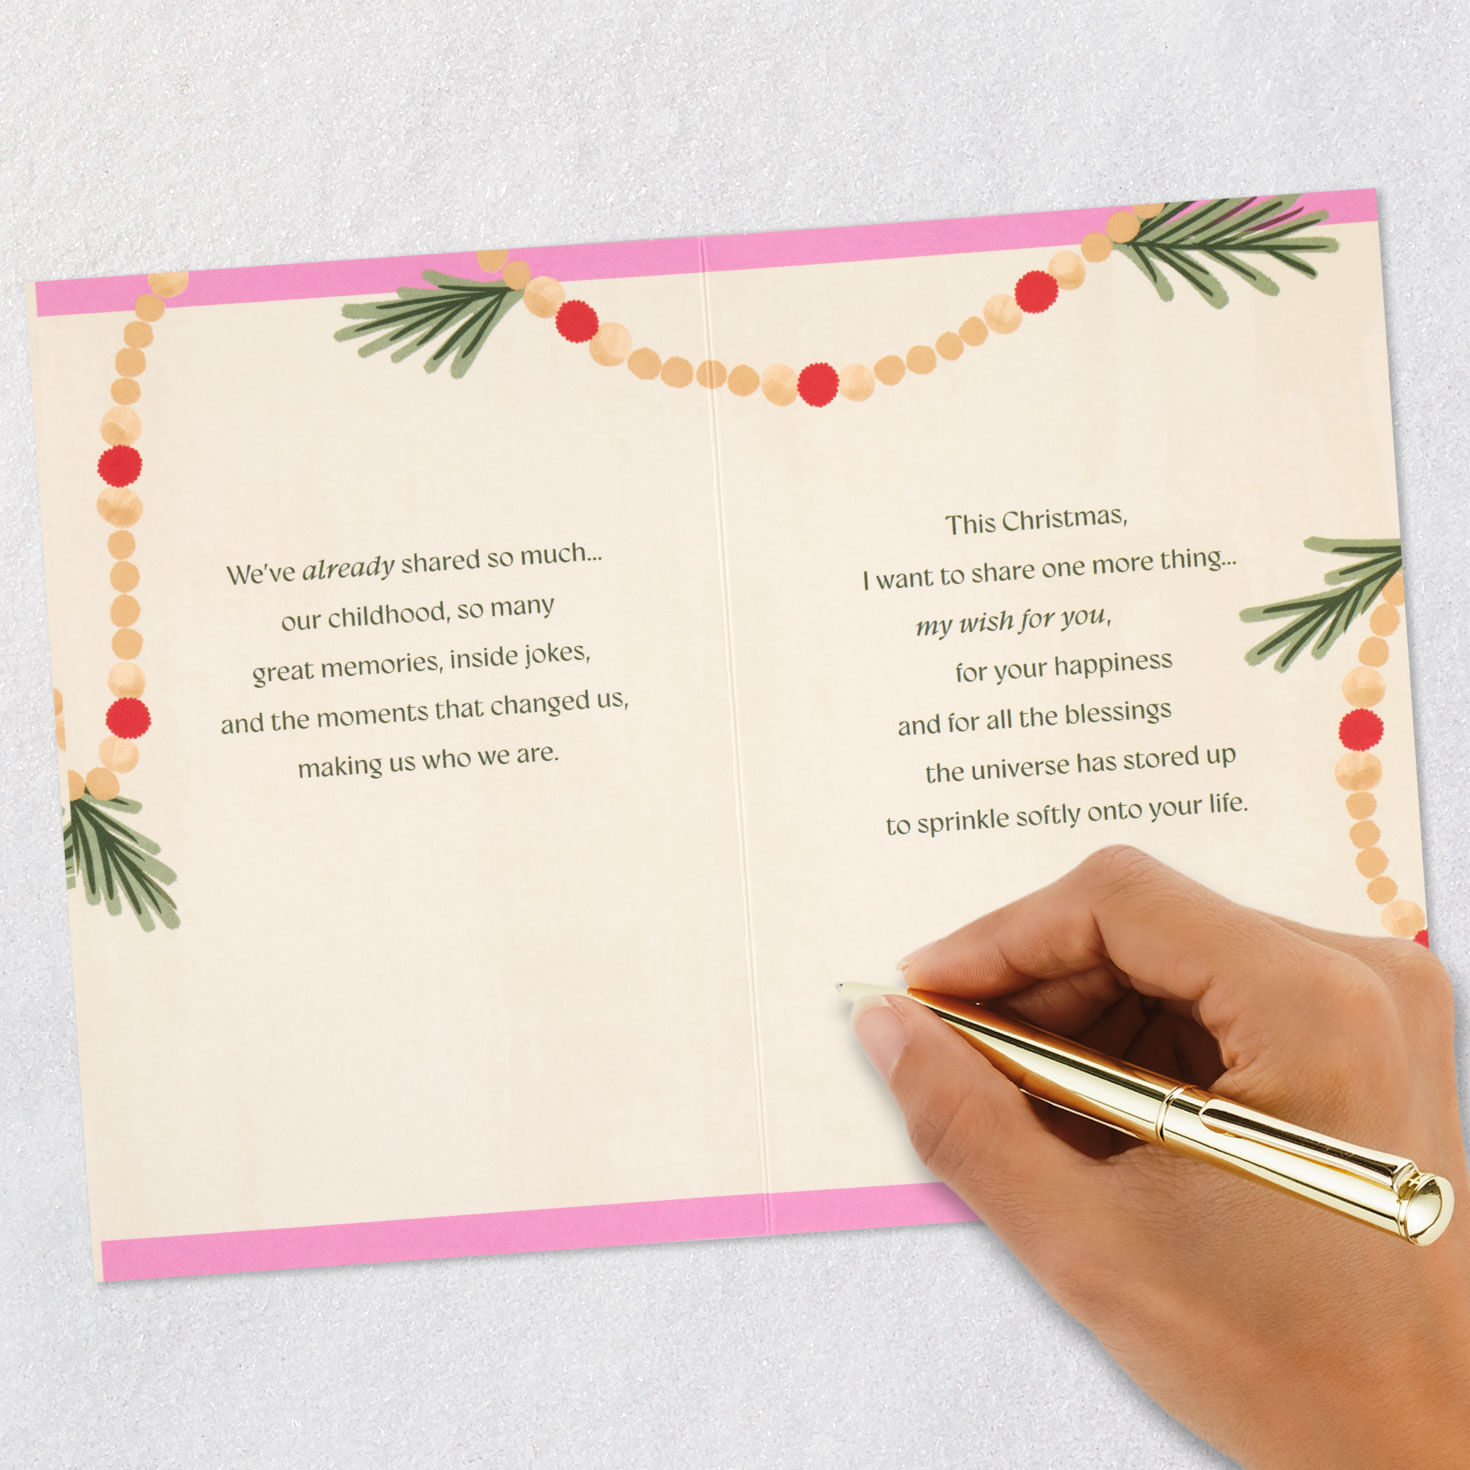 We've already shared so much...
our childhood, so many
great memories, inside jokes,
and the moments that changed us,
making us who we are.
This Christmas,
I want to share one more thing...
my wish for you,
for your happiness
and for all the blessings
the universe has stored up
to sprinkle softly onto your life.